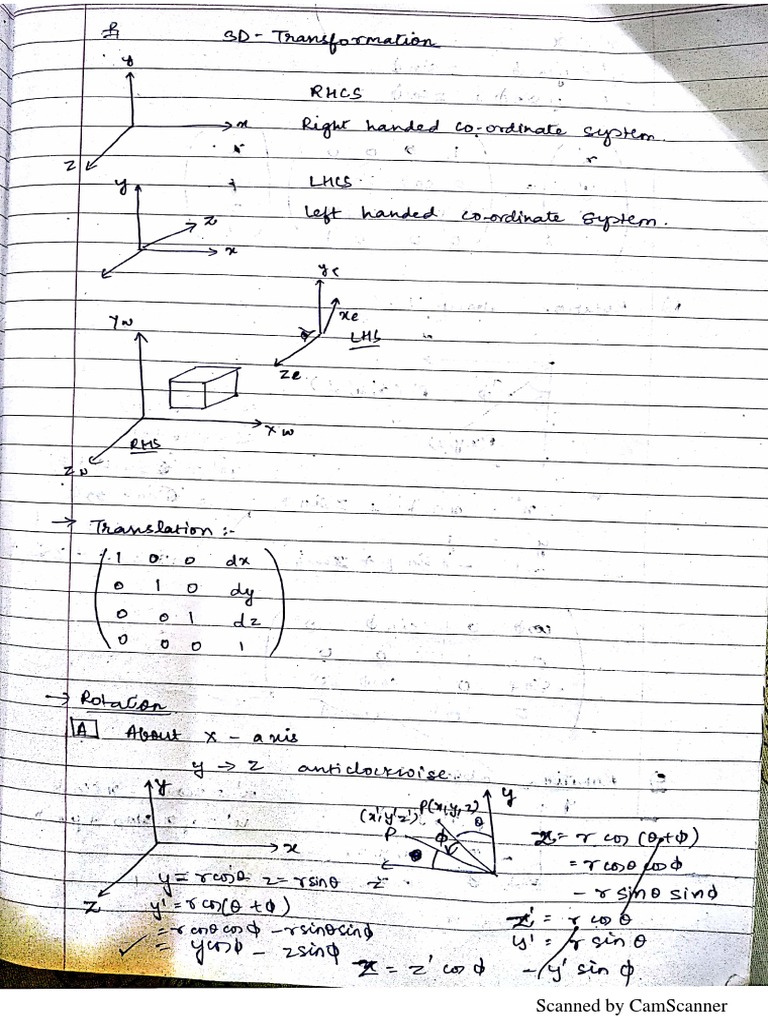 3D - Transformation
y
RHCS
x
Right handed co-ordinate system.
z
y
LHCS
z
left handed co-ordinate system.
x
yc
xe
Yw
LHS
ze
X w
RHS
→ Translation :-
1 0 0 dx
0 1 0 dy
0 0 1 dz
0 0 0 1
→ Rotation
A About x - axis
y → z anticlockwise
y
y
P(x,y,z)
(x',y'z')
θ
P
ϕ
x
z
= r cos (θ+ϕ)
= r cosθ cosϕ
- r sinθ sinϕ
y = rcosθ z = rsinθ z
y' = r cos(θ + ϕ)
= r cosθ cosϕ - rsinθsinϕ
= ycosϕ - zsinϕ
z' = r cos θ
y' = r sin θ
= z' cos ϕ - y' sin ϕ
Scanned by CamScanner